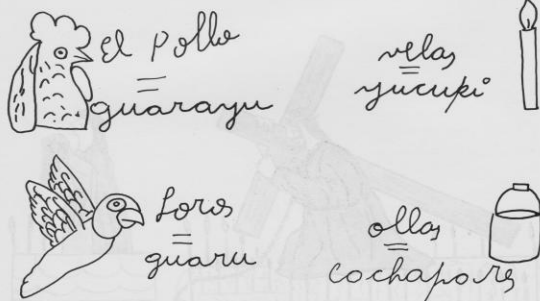 El Pollo
=
guarayu
velas
=
yucuki
Loros
=
guaru
ollas
=
cochapores